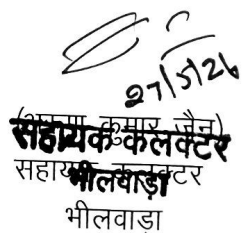 27/5/26
(अरुण कुमार जैन)
सहायक कलक्टर
भीलवाड़ा
सहायक कलक्टर
भीलवाड़ा